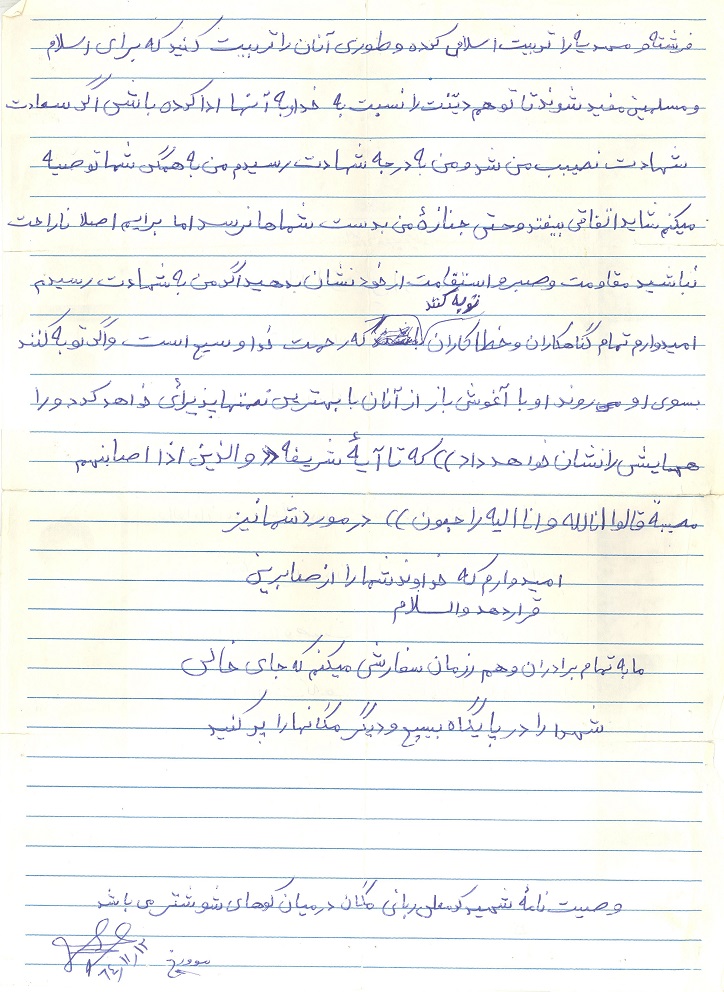 فرشته و مهدیه را تربیت اسلامی کرده و طوری آنان را تربیت کنید که برای اسلام
و مسلمین مفید شوند تا تو هم دینت را نسبت به خدا و به آنها ادا کرده باشی اگر سعادت
شهادت نصیب من شد و من به درجه شهادت رسیدم من به همگی شما توصیه
میکنم شاید اتفاقی بیفتد و حتی جنازهٔ من بدست شماها نرسد اما برایم اصلا ناراحت
نباشید مقاومت و صبر و استقامت از خود نشان بدهید اگر من به شهادت رسیدم
توبه کنند
امیدوارم تمام گناهکاران و خطاکاران که رحمت خدا وسیع است واگر توبه کنند
بسوی او می روند او با آغوش باز از آنان با بهترین نعمتها پذیرائی خواهد کرد و را
همایش را نشان خواهد داد)) که تا آیهٔ شریفه ((والذین اذا اصابتهم
مصیبة قالوا انالله و انا الیه راجعون)) در مورد شما نیز
امیدوارم که خداوند شما را از صابرین
قرار دهد والسلام
ما به تمام برادران و هم رزمان سفارش میکنم که جای خالی
شهدا را در پایگاه بسیج و دیگر مکانها را پر کنید
وصیت نامهٔ شهید کرمعلی ربانی مکان در میان کوهای شوشتر می باشد
مورخ